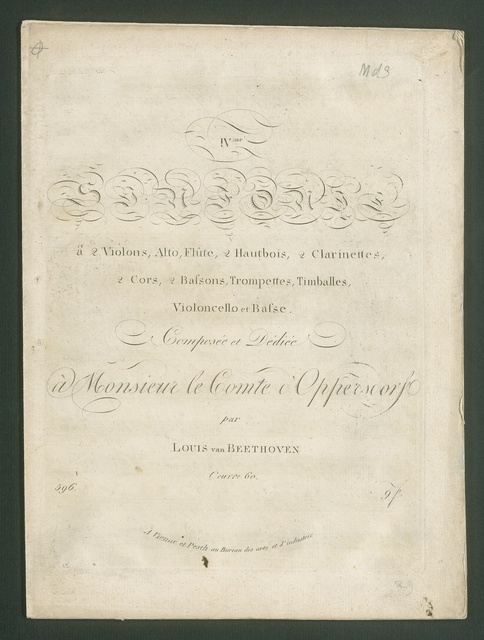 Md3
IVme
SINFONIE
à 2 Violons, Alto, Flûte, 2 Hautbois, 2 Clarinettes,
2 Cors, 2 Bassons, Trompettes, Timballes,
Violoncello et Basse.
Composée et Dédiée
à Monsieur le Comte d'Oppersdorf
par
LOUIS van BEETHOVEN
Oeuvre 60.
596.
9 f
A Vienne et Pesth au Bureau des arts et d'industrie